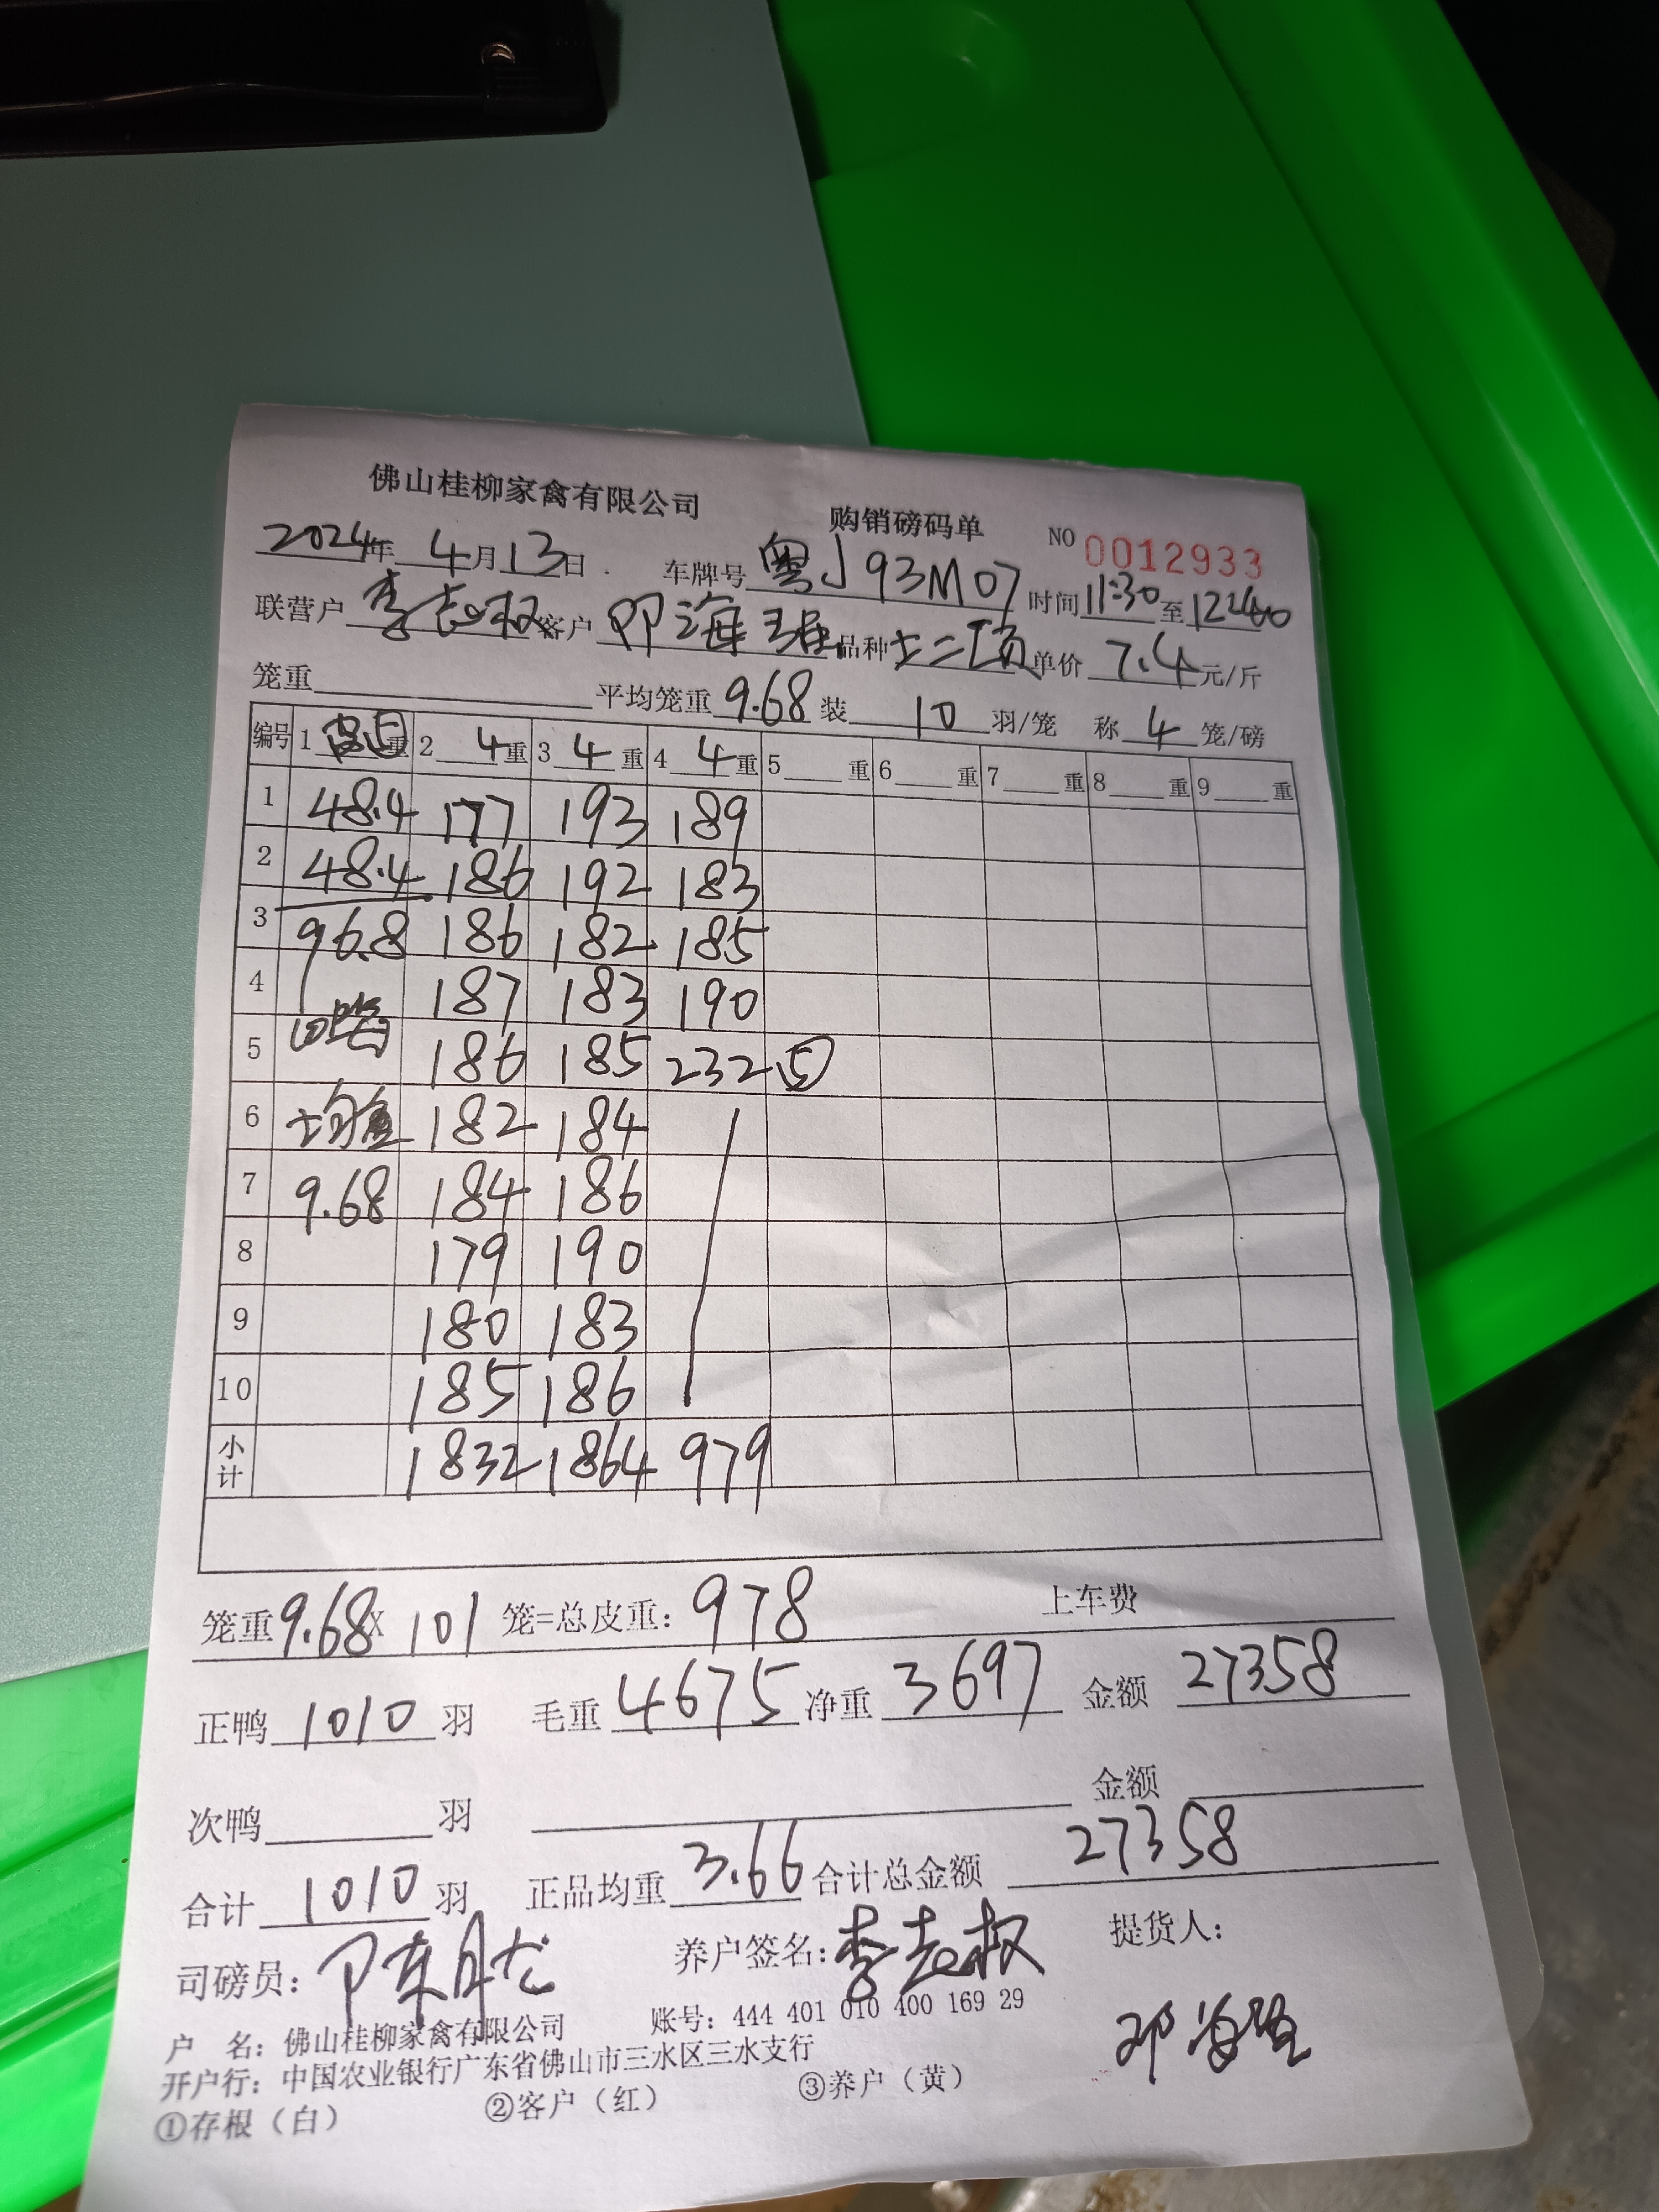 佛山桂柳家禽有限公司 购销磅码单 NO 0012933
2024年 4月13日 车牌号 粤J93M07 时间11:30至12:40
联营户 李志权 客户 邓海 品种 土二 单价 7.4 元/斤
笼重 平均笼重 9.68 装 10 羽/笼 称 4 笼/磅
编号 1 重 2 4 重 3 4 重 4 4 重 5 重 6 重 7 重 8 重 9 重
1 48.4 177 193 189
2 48.4 186 192 183
3 96.8 186 182 185
4 187 183 190
5 186 185 232 ⑤
6 均重 182 184
7 9.68 184 186
8 179 190
9 180 183
10 185 186
小计 1832 1864 979
笼重9.68X 101 笼=总皮重: 978 上车费
正鸭 1010 羽 毛重 4675 净重 3697 金额 27358
次鸭 羽 金额
合计 1010 羽 正品均重 3.66 合计总金额 27358
司磅员: 养户签名: 李志权 提货人:
户 名: 佛山桂柳家禽有限公司 账号: 444 401 010 400 169 29
开户行: 中国农业银行广东省佛山市三水区三水支行
①存根（白） ②客户（红） ③养户（黄）